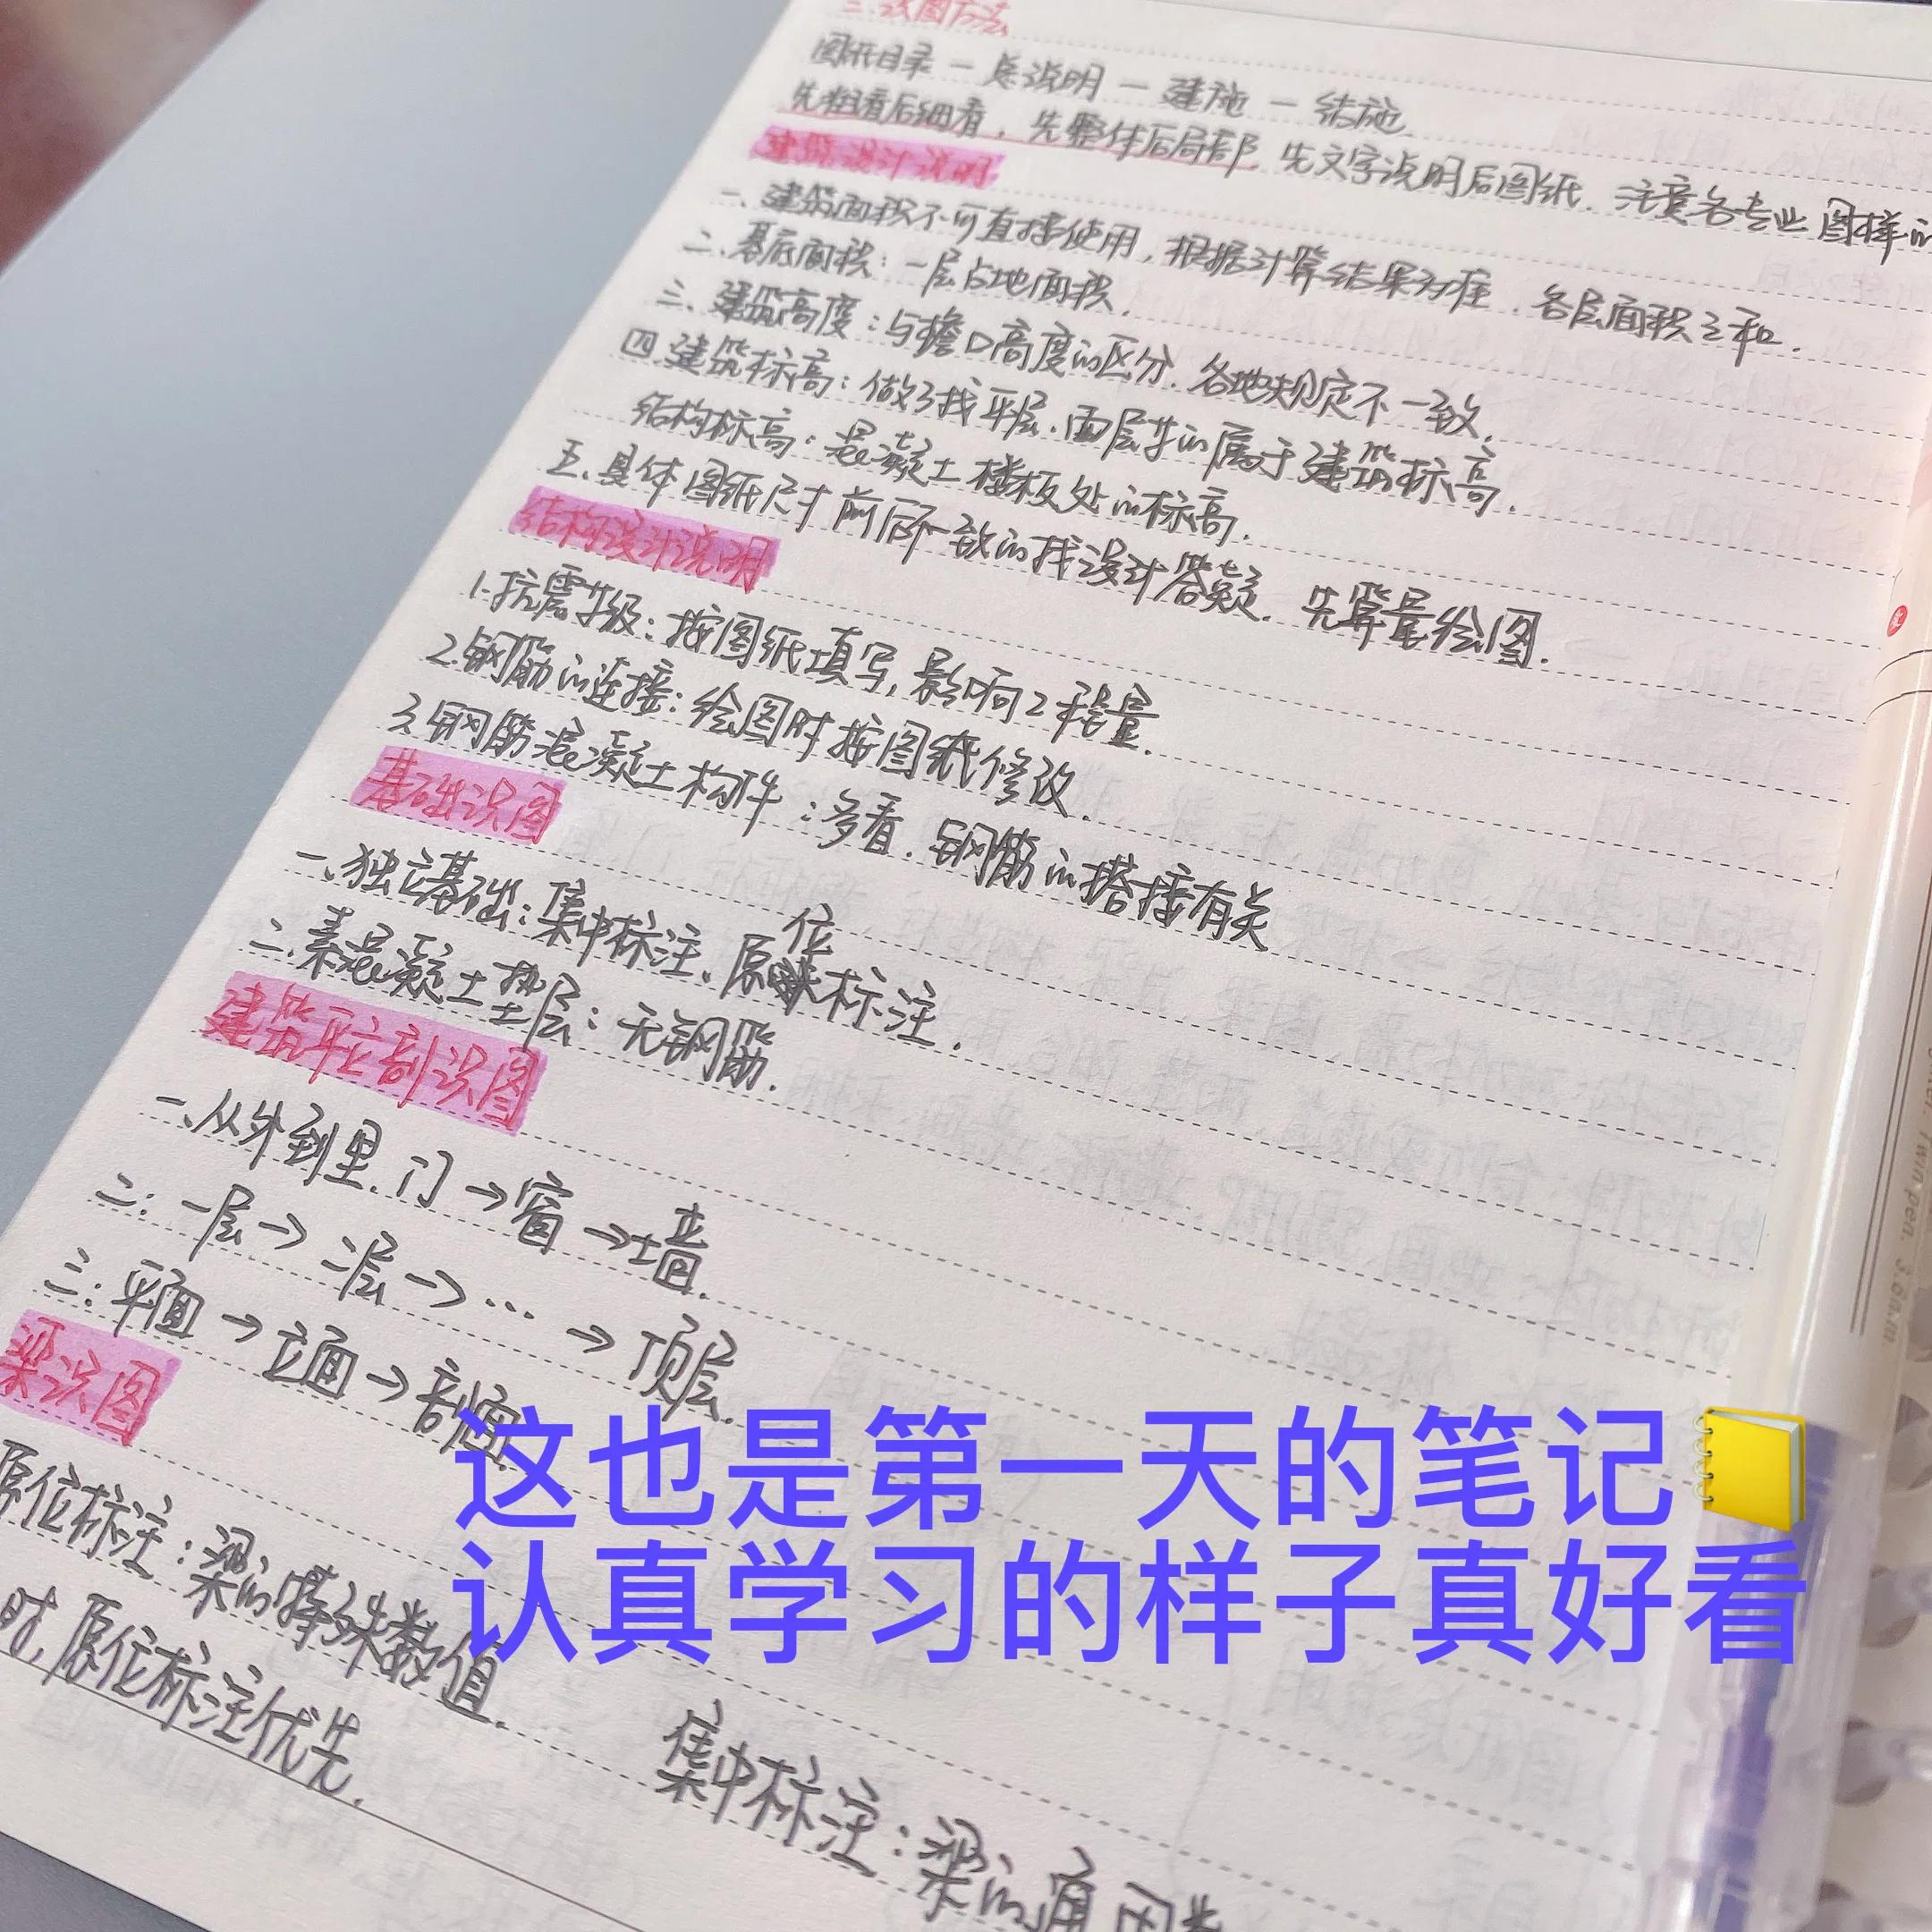 三.识图方法
图纸目录 — 总说明 — 建施 — 结施
先粗看后细看，先整体后局部.先文字说明后图纸.注意各专业图样的
建筑设计说明
一、建筑面积不可直接使用,根据计算结果对症.各层面积之和.
二.基底面积:一层占地面积.
三.建筑高度:与檐口高度的区分.各地规定不一致.
四.建筑标高:做了找平层.面层等的属于建筑标高.
结构标高:混凝土楼板处的标高.
五.具体图纸尺寸前后不一致的找设计答疑.先算量绘图.
结构设计说明
1.抗震等级:按图纸填写,影响工程量.
2.钢筋的连接:绘图时按图纸修改.
3.钢筋混凝土构件:多看.钢筋的搭接有关
基础识图
一.独立基础:集中标注、原位标注.
二.素混凝土垫层:无钢筋.
建筑平立剖识图
一、从外到里.门→窗→墙.
二:一层→二层→…→顶层.
三:平面→立面→剖面.
梁识图
原位标注:梁的特殊数值.
集中标注:梁的通用
时,原位标注优先.
这也是第一天的笔记📒
认真学习的样子真好看